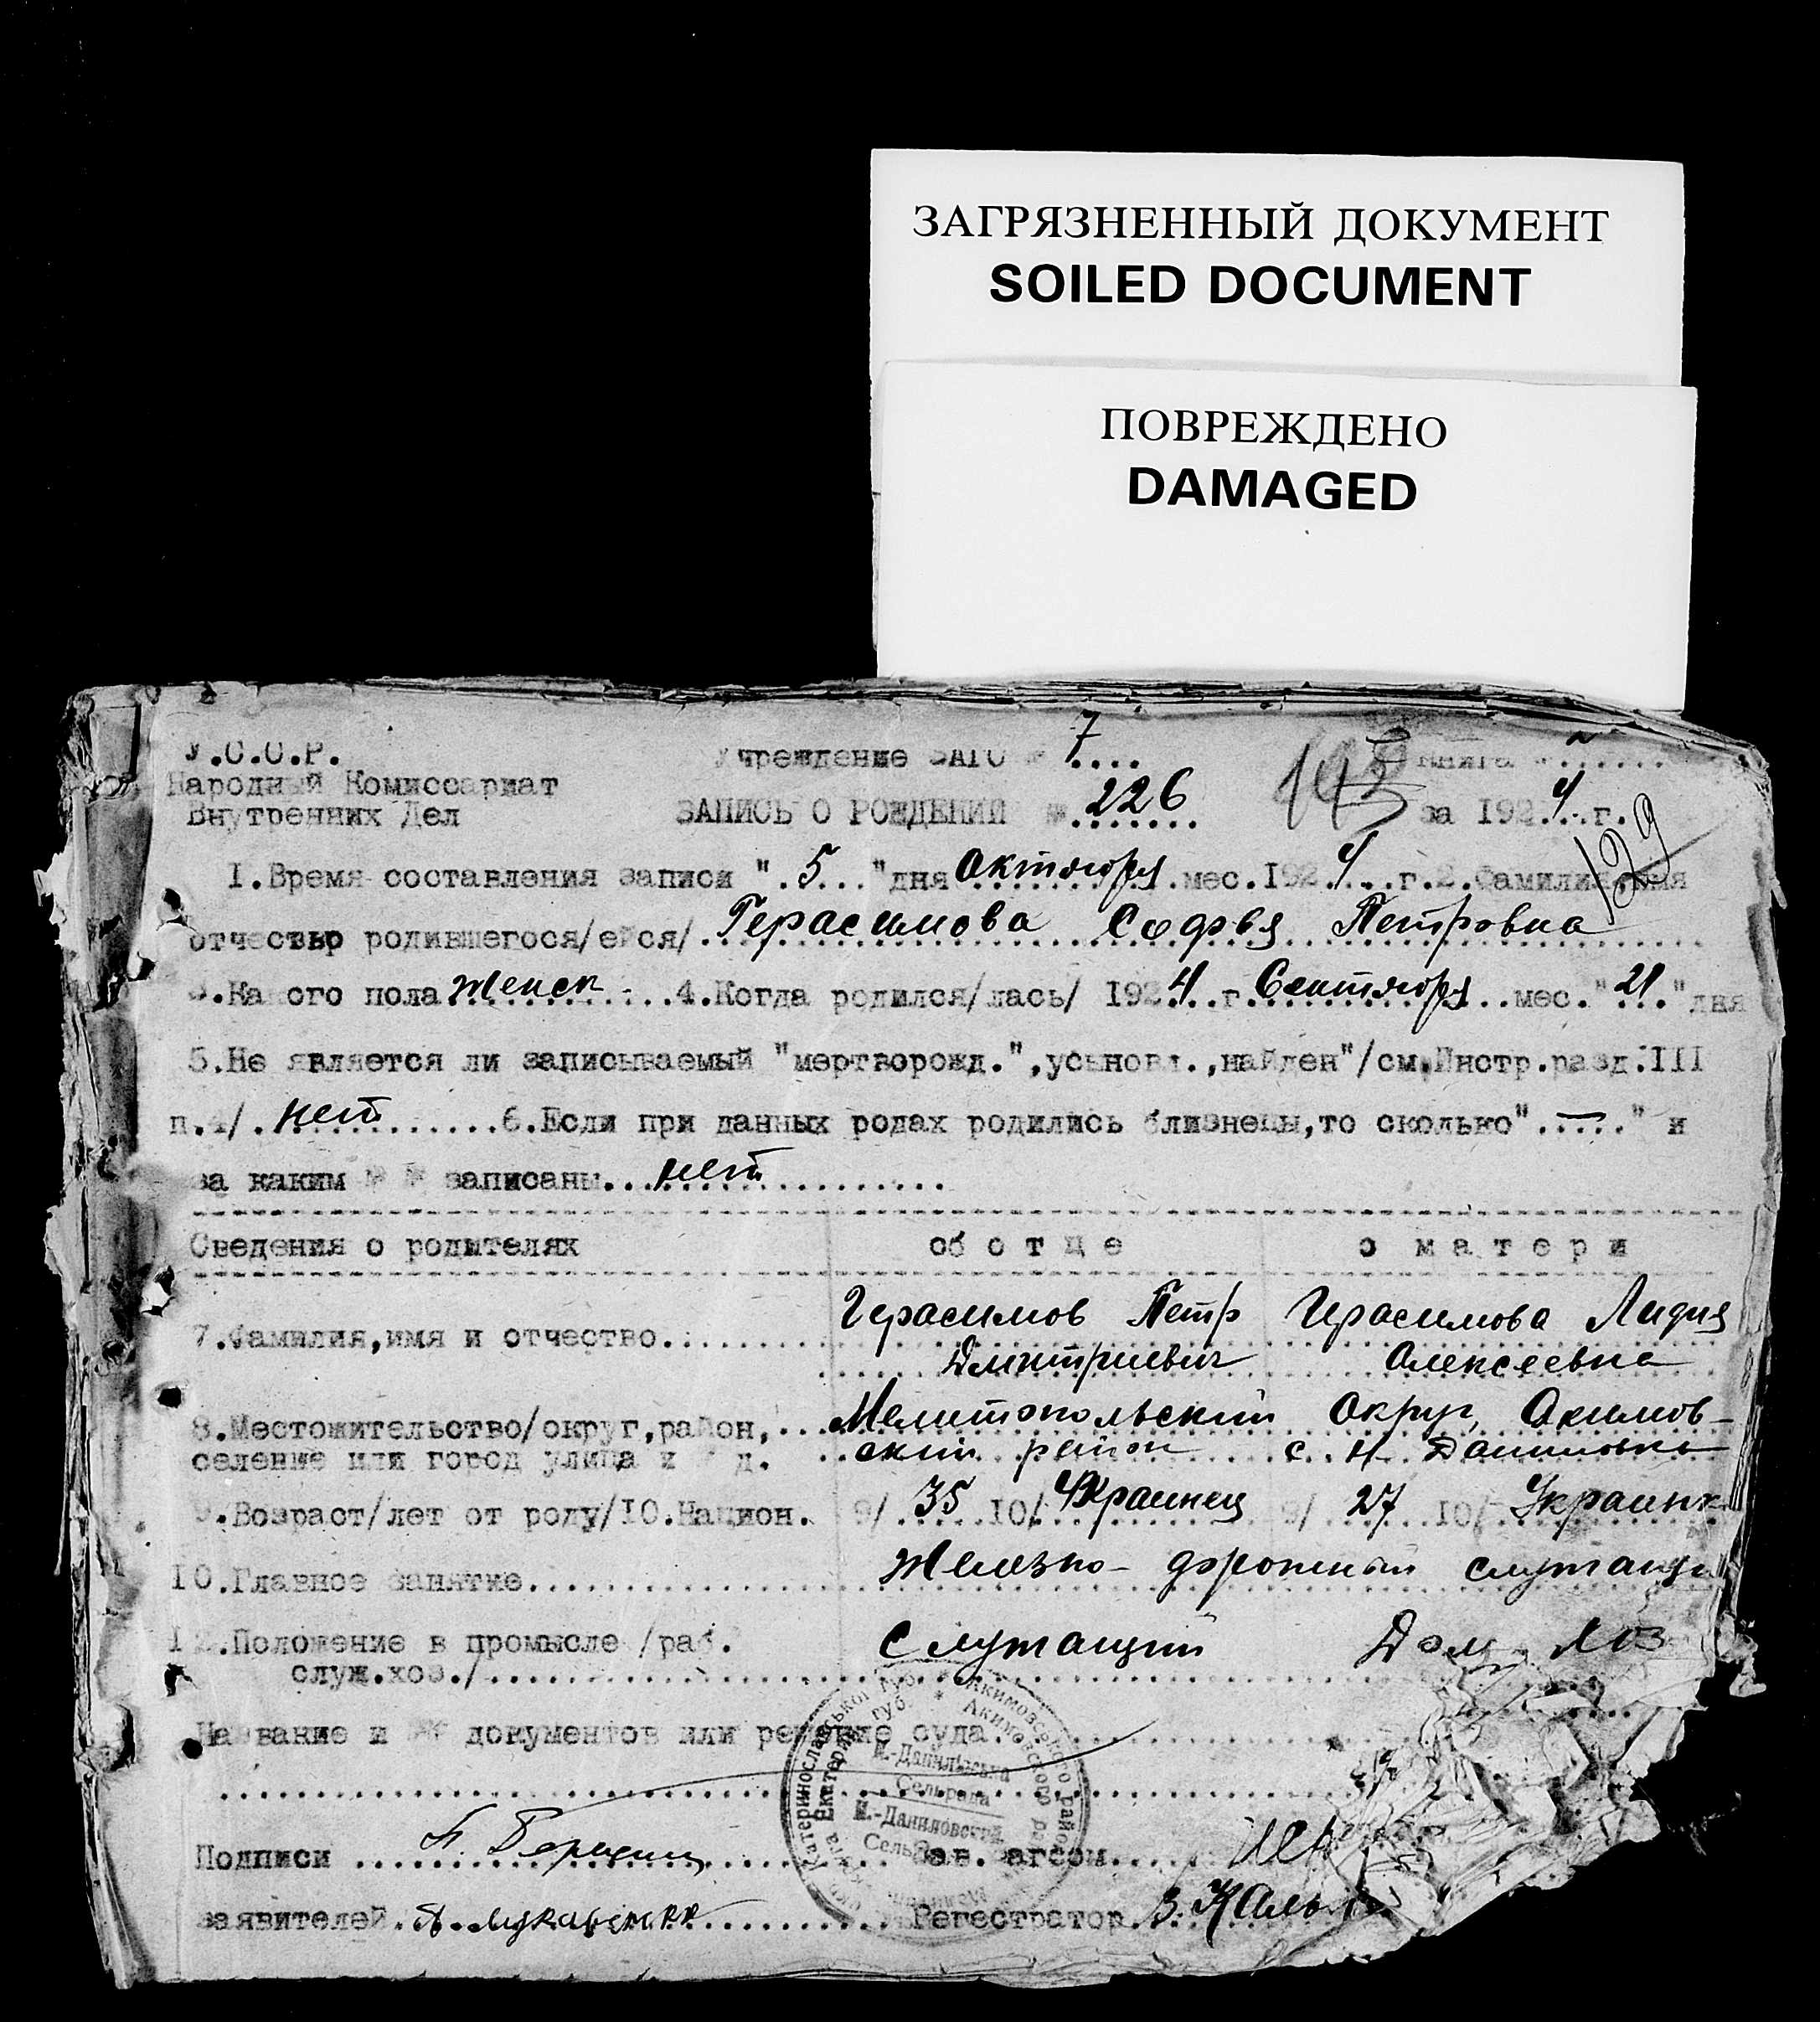 ЗАГРЯЗНЕННЫЙ ДОКУМЕНТ
SOILED DOCUMENT
ПОВРЕЖДЕНО
DAMAGED
У.С.С.Р. Учреждение ЗАГС № 7.... книга №.......
Народный Комиссариат
Внутренних Дел ЗАПИСЬ О РОЖДЕНИИ № 226 143 за 1924 г.
129
1.Время составления записи " 5 "дня Октября мес.1924 г.2.Фамилия,имя
отчество родившегося/ейся/ Герасимова Софья Петровна
3.Какого пола женск 4.Когда родился/лась/ 1924 г. Сентября мес."21"дня
5.Не является ли записываемый "мертворожд.",усынов.,найден"/см.Инстр.разд.III
п.4/ нет 6.Если при данных родах родились близнецы,то сколько" — " и
за каким № № записаны нет
Сведения о родителях об отце о матери
7.Фамилия,имя и отчество Герасимов Петр Герасимова Лидия
Дмитриевич Алексеевна
8.Местожительство/округ,район, Мелитопольский Округ, Акимов-
селение или город улица и д. ский район с. Н Даниловка
9.Возраст/лет от роду/10.Национ. 9/ 35 10/ Украинец 9/ 27 10/ Украинк
10.Главное занятие Железно-дорожный служащи
12.Положение в промысле /раб. Служащий Дом. хоз
служ.хоз./
Название и № документов или решение суда
Н.-Данилівська
Сельрада
Н.-Даниловский
Подписи Зав. агсом
заявителей Регестратор З.